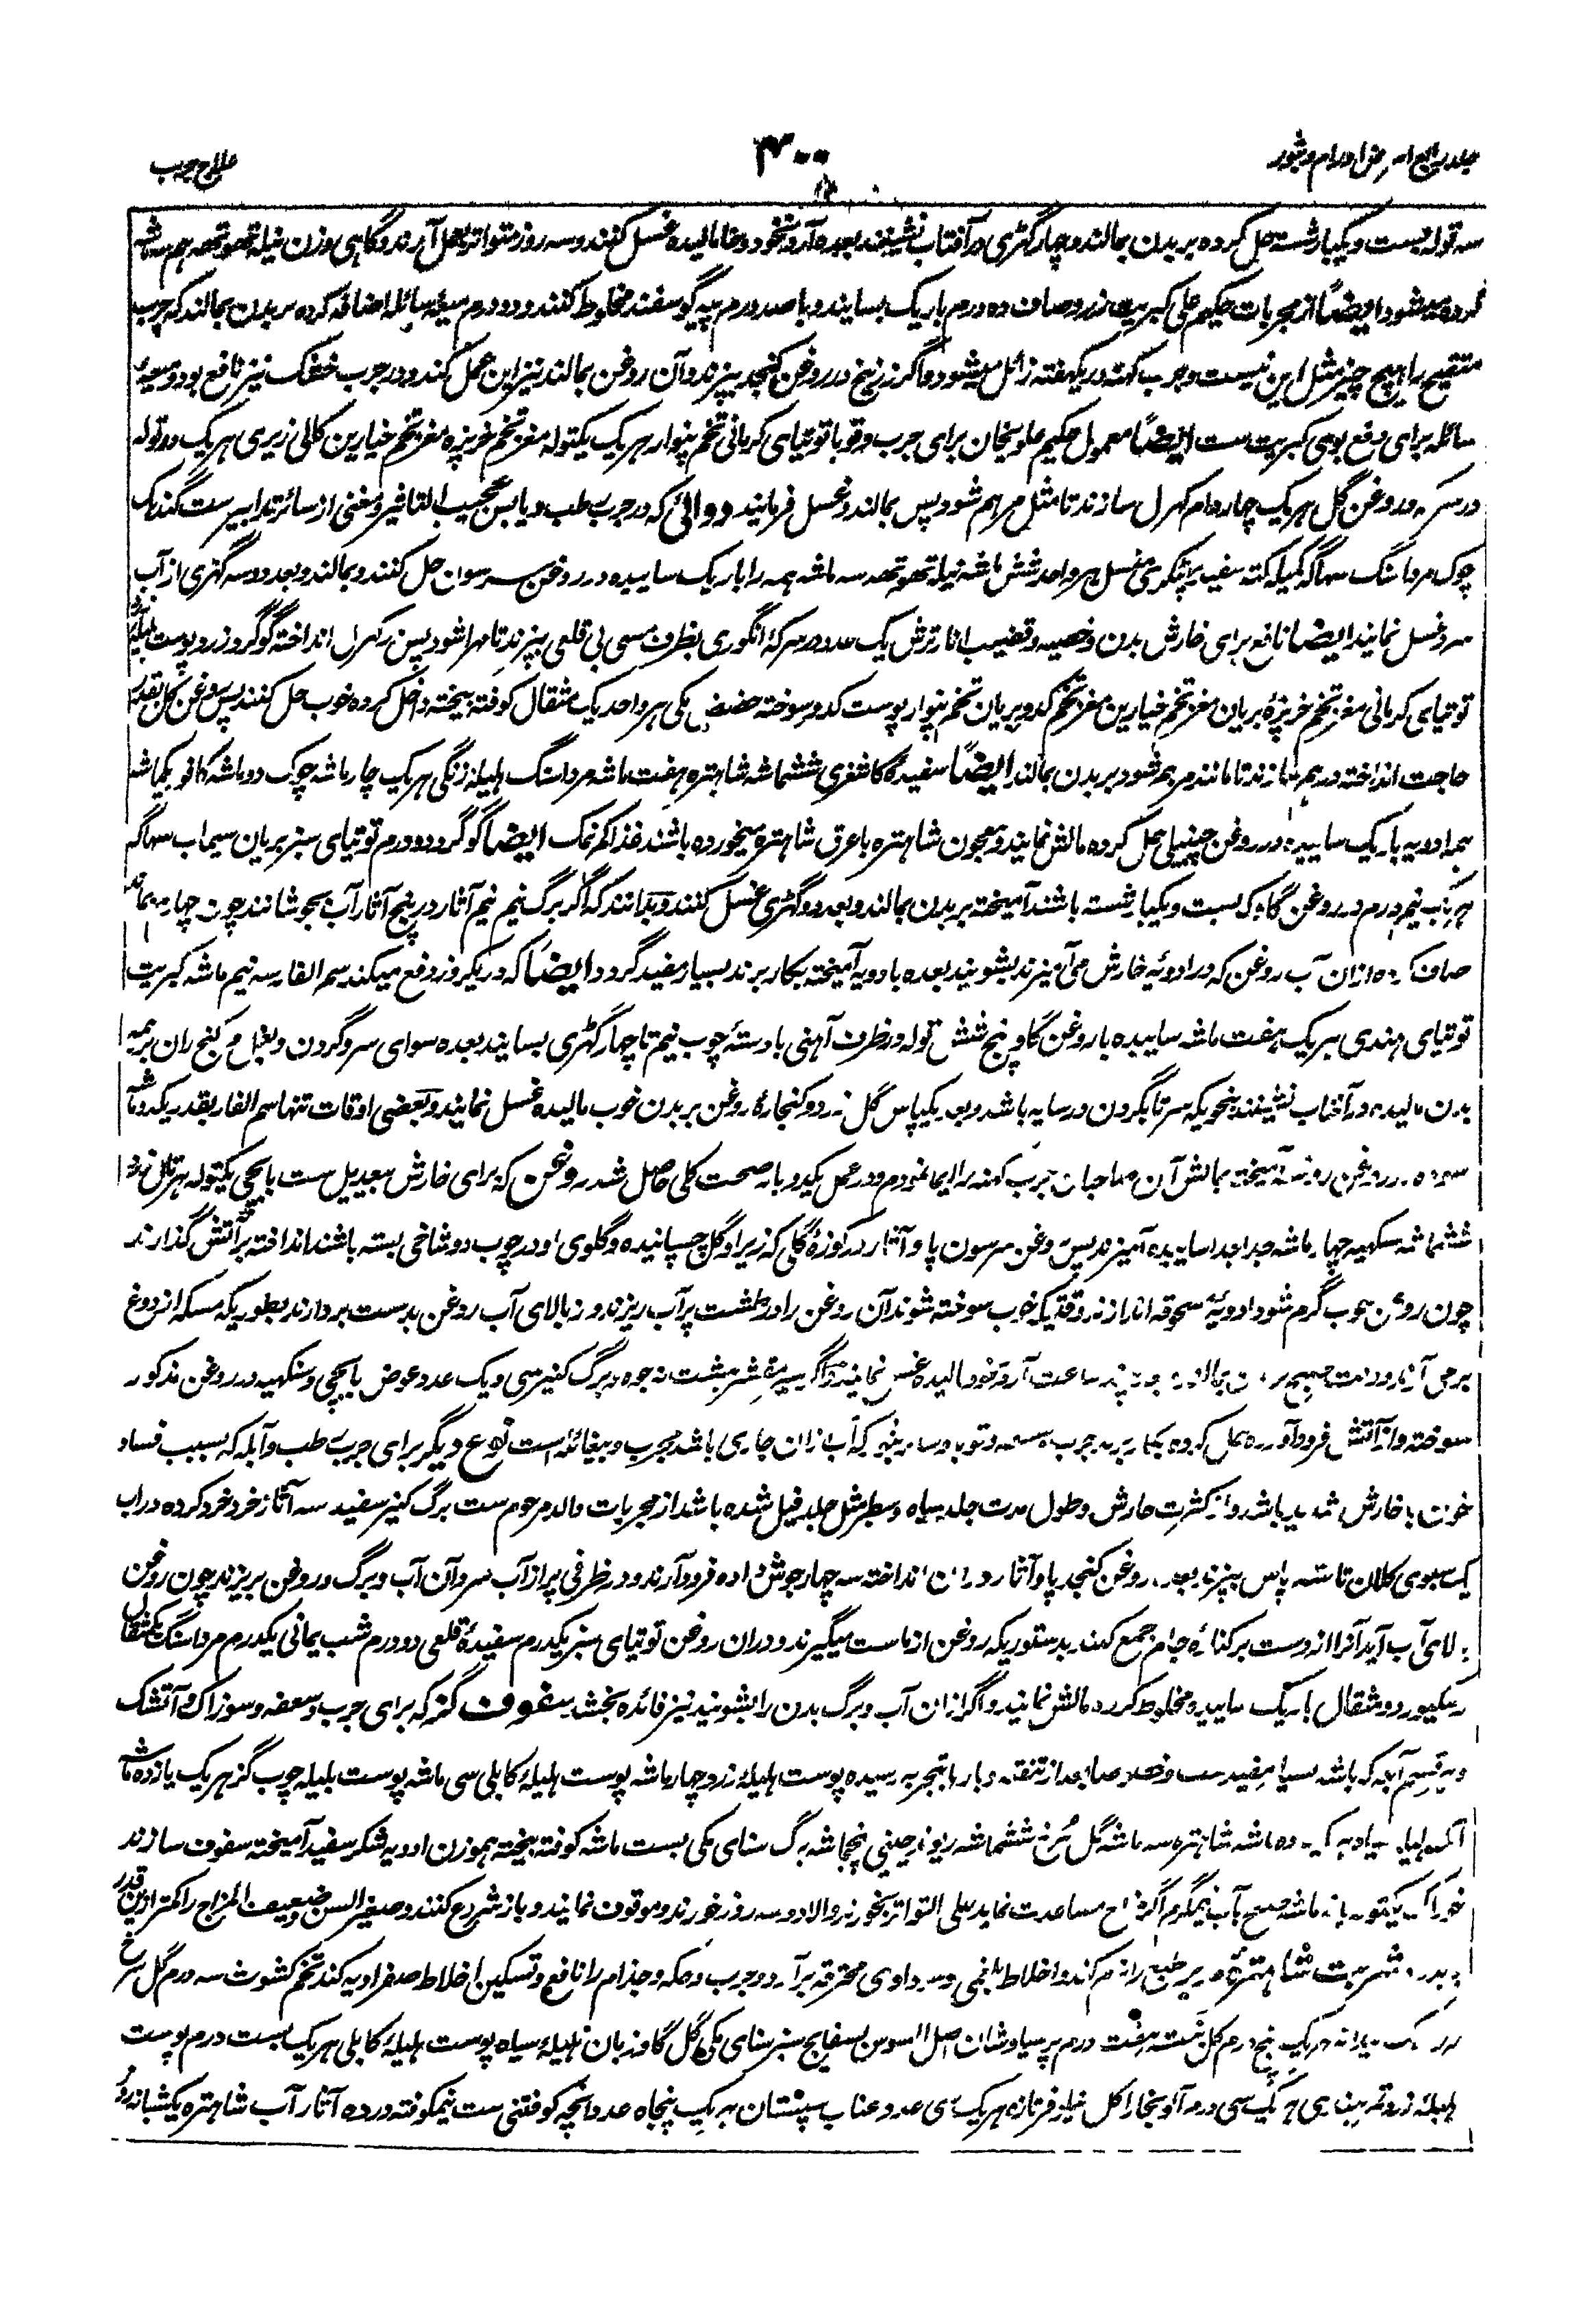 جلد رابع امراض اورام و بثور
۴۰۰
علاج جرب
سه توله بست و یکبار شسته حل کرده بر بدن بمالند و چار گهڑی در آفتاب نشینند بعده آرد نخود و حنا مالیده غسل کنند و سه روز متواتر بعمل آرند و گاهی بوزن نیله تهوتهه هم سه ماشه
کرده میشود ایضاً از مجربات حکیم علی کبریت زرد صاف ده درم باریک بسایند و با صد درم پیه گوسفند مخلوط کنند و دو درم میعۀ سائله اضافه کرده بر بدن بمالند که جرب
متقیح را هیچ چیز مثل این نیست و جرب کهنه در یکهفته زائل میشود و اگر زرنیخ در روغن کنجد بپزند و آن روغن بمالند نیز این عمل کند و در جرب خشک نیز نافع بود و میعۀ
سائله برای دفع بوی کبریت ست ایضاً معمول حکیم علویخان برای جرب و قوبا توتیای کرمانی تخم پنوار هر یک یکتوله مغز تخم خرپزه مغز تخم خیارین کالی زیری هر یک دو توله
در سرکه و روغن گل هر یک چار دام کهرل سازند تا مثل مرهم شود پس بمالند و غسل فرمایند دوائی که در جرب رطب و یابس عجیب التاثیر و مغنی از سائر تدابیر ست گندهک
چوک مرداسنگ سهاگه کمیله کته سفید پهٹکری منسل هر واحد شش ماشه نیله تهوتهه سه ماشه همه را باریک ساییده در روغن سرسون حل کنند و بمالند و بعد دو سه گهڑی از آب
سرد غسل نمایند ایضاً نافع برای خارش بدن و خصیه و قضیب انار ترش یک عدد در سرکۀ انگوری بظرف مسی بی قلعی بپزند تا مهرا شود پس در کهرل انداخته گوگرد زرد پوست هلیله
توتیای کرمانی مغز تخم خرپزه بریان مغز تخم خیارین مغز تخم کدو بریان تخم پنوار پوست کدو سوخته حضض مکی هر واحد یک مثقال کوفته بیخته داخل کرده خوب حل کنند پس روغن گل بقدر
حاجت انداخته درهم سازند تا مانند مرهم شود بر بدن بمالند ایضاً سفیدۀ کاشغری ششماشه شاهتره هفت ماشه مرداسنگ هلیله زنگی هر یک چار ماشه چوک دو ماشه کافور یکماشه
همه ادویه باریک ساییده در روغن چنبیلی حل کرده مالش نمایند و معجون شاهتره با عرق شاهتره میخورده باشند غذا کم نمک ایضاً گوگرد دو درم توتیای سبز بریان سیماب سهاگه
هر یک نیم درم در روغن گاو که بست و یکبار شسته باشند آمیخته بر بدن بمالند و بعد دو گهڑی غسل کنند و بدانند که اگر برگ نیم نیم آثار در پنج آثار آب بجوشانند چون چهارم بماند
صاف کرده ازان آب روغن که در ادویۀ خارش می آمیزند بشویند بعده با ادویه آمیخته بکار برند بسیار مفید گردد ایضاً که در یکروز دفع میکند سم الفار سه نیم ماشه کبریت
توتیای هندی هر یک هفت ماشه ساییده با روغن گاو پنج شش توله در ظرف آهنی با دستۀ چوب نیم تا چهار گهڑی بسایند بعده سوای سر و گردن و بغل و کنج ران بر همه
بدن مالیده در آفتاب نشینند بنحویکه سر تا بگردن در سایه باشد و بعد یکپاس گل زرد و کنجارۀ روغن بر بدن خوب مالیده غسل نمایند و بعضی اوقات تنها سم الفار بقدر یکدو ماشه
سوده در روغن زرد آمیخته بمالش آن صاحبان جرب کهنه را ایما نمودم و در عمل یکدو بار صحت کلی حاصل شد روغن که برای خارش بیعدیل ست بابچی یکتوله هرتال زرد
ششماشه سنکهیه چهار ماشه جدا جدا ساییده آمیزند پس روغن سرسون پاو آثار در کوزۀ گلی که زیر او گل چسپانیده و گلوی او در چوب دوشاخی بسته باشند انداخته بر آتش گذارند
چون روغن خوب گرم شود ادویۀ مسحوقه اندازند وقتیکه خوب سوخته شوند آن روغن را در طشت پر آب ریزند و از بالای آب روغن بدست بردارند بطوریکه مسکه از دوغ
برمی آرند و وقت صبح بر بدن بمالند و بعد چند ساعت آرد نخود مالیده غسل نمایند و اگر برگ کنیر سی و یک عدد عوض بابچی و سنکهیه در روغن مذکور
سوخته و از آتش فرود آورده حل کرده بکار برند جرب و سعفه و قوبا و سائر بثور که آب ازان جاری باشد مجرب و بیغائله است نوع دیگر برای جرب رطب و آبله که بسبب فساد
خون با خارش شدید باشد و از کثرت خارش و طول مدت جلد سیاه و سطبر مثل جلد فیل شده باشد از مجربات والد مرحوم ست برگ کنیر سفید سه آثار خرد خرد کرده در آب
یک سبوی کلان تا سه پاس بپزند بعد روغن کنجد پاو آثار دران انداخته سه چهار جوش داده فرود آرند و در ظرفی پر از آب سرد آن آب و برگ و روغن بریزند چون روغن
بالای آب آید آنرا از دست بر کنارۀ جام جمع کنند بدستوریکه روغن از ماست میگیرند و دران روغن توتیای سبز یکدرم سفیدۀ قلعی دو درم شب یمانی یکدرم مرداسنگ یکمثقال
رسکپور دو مثقال باریک ساییده مخلوط کرده مالش نمایند و اگر ازان آب و برگ بدن را بشویند نیز فائده بخشد سفوف گز که برای جرب و سعفه و سوزاک و آتشک
و هر قسم آبله که باشد بسیار مفید ست خصوصاً بعد از تنقیه و بارها بتجربه رسیده پوست هلیلۀ زرد چهار ماشه پوست هلیلۀ کابلی سی ماشه پوست بلیله چوب گز هر یک یازده ماشه
آمله هلیله سیاه هر یک ده ماشه شاهتره سه ماشه گل سرخ ششماشه ریوند چینی پنجماشه برگ سنای مکی بست ماشه کوفته بیخته هموزن ادویه شکر سفید آمیخته سفوف سازند
خوراک یکتوله یازده ماشه صبح بآب نیمگرم اگر مزاج مساعدت نماید علی التواتر بخورند والا دو سه روز خورند و موقوف نمایند و باز شروع کنند و صغیر السن و ضعیف المزاج را کمتر ازین قدر
بدهند شربت شاهتره طبع را نرم کند و اخلاط بلغمی و سوداوی محترقه برآرد و جرب و حکه و جذام را نافع و تسکین اخلاط صفراویه کند تخم کشوث سه درم گل سرخ
هر یک پنج درم گل بنفشه هفت درم پرسیاوشان اصل السوس بسفایج سبز سنای مکی گل گاوزبان هلیلۀ سیاه پوست هلیلۀ کابلی هر یک بست درم پوست
هلیلۀ زرد تمر هندی هر یک سی درم آلوبخارا گل نیلوفر تازه هر یک سی عدد عناب سپستان هر یک پنجاه عدد آنچه کوفتنی ست نیمکوفته در ده آثار آب شاهتره یکشبانه روز